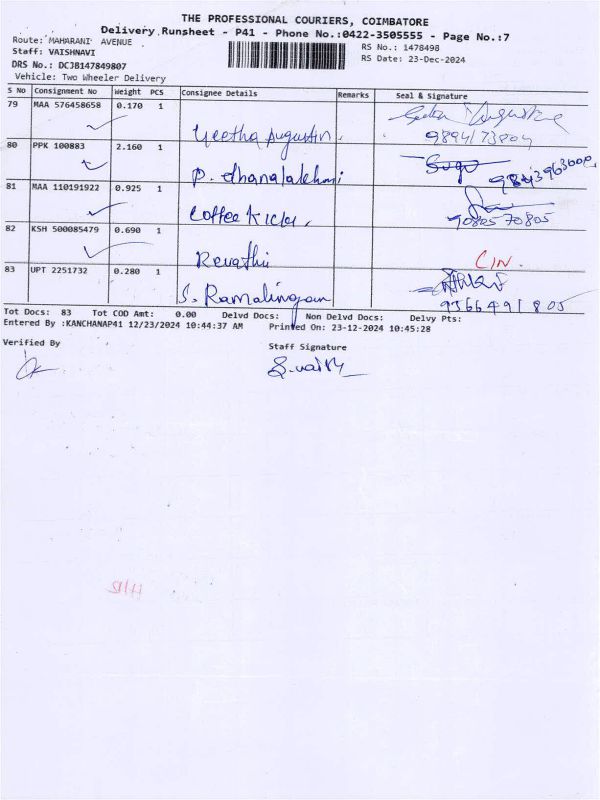 THE PROFESSIONAL COURIERS, COIMBATORE
Delivery Runsheet - P41 - Phone No.:0422-3505555 - Page No.:7
Route: MAHARANI AVENUE
RS No.: 1478498
Staff: VAISHNAVI
RS Date: 23-Dec-2024
DRS No.: DCJB147849807
Vehicle: Two Wheeler Delivery
S No Consignment No Weight PCS Consignee Details Remarks Seal & Signature
79 MAA 576458658 0.170 1 Geetha Augustin
80 PPK 100883 2.160 1 P. dhanalakhmi
81 MAA 110191922 0.925 1 Coffee Kicks 9080570805
82 KSH 500085479 0.690 1 Revathi
83 UPT 2251732 0.280 1 S. Ramalingam
Tot Docs: 83 Tot COD Amt: 0.00 Delvd Docs: Non Delvd Docs: Delvy Pts:
Entered By :KANCHANAP41 12/23/2024 10:44:37 AM Printed On: 23-12-2024 10:45:28
Verified By
Staff Signature